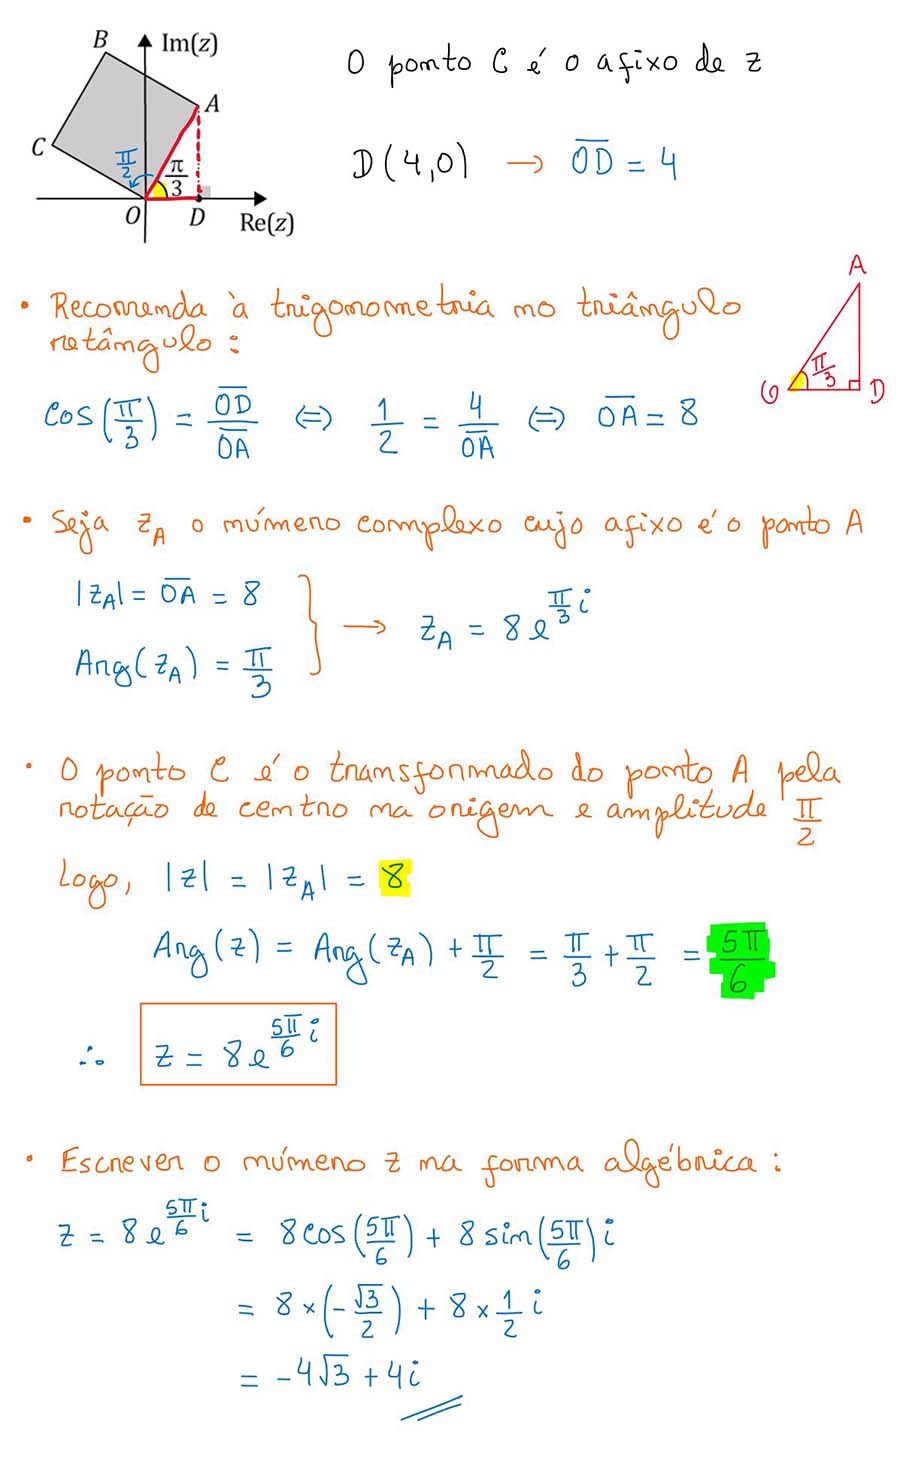 B
Im(z)
A
C
π/2
π/3
O
D
Re(z)
O ponto C é o afixo de z
D(4,0) → OD̅ = 4
A
π/3
O
D
• Recorrenda à trigonometria no triângulo
retângulo:
cos(π/3) = OD̅/OA̅ ⇔ 1/2 = 4/OA̅ ⇔ OA̅ = 8
• Seja z_A o número complexo cujo afixo é o ponto A
|z_A| = OA̅ = 8
Arg(z_A) = π/3
} → z_A = 8e^(π/3 i)
• O ponto C é o transformado do ponto A pela
rotação de centro na origem e amplitude π/2
Logo, |z| = |z_A| = 8
Arg(z) = Arg(z_A) + π/2 = π/3 + π/2 = 5π/6
∴ z = 8e^(5π/6 i)
• Escrever o número z na forma algébrica:
z = 8e^(5π/6 i) = 8cos(5π/6) + 8sin(5π/6)i
= 8×(-√3/2) + 8×1/2 i
= -4√3 + 4i